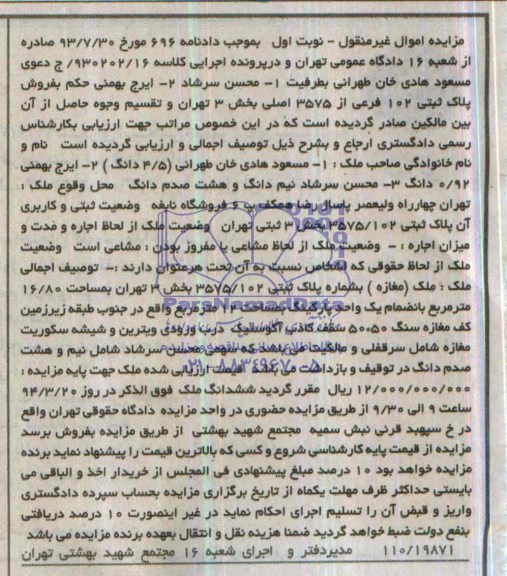 مزایده اموال غیرمنقول - نوبت اول   بموجب دادنامه ۶۹۶ مورخ ۹۳/۷/۳۰ صادره
از شعبه ۱۶ دادگاه عمومی تهران و درپرونده اجرایی کلاسه ۹۳۰۲۰۲/۱۶/ ج دعوی
مسعود هادی خان طهرانی بطرفیت ۱- محسن سرشاد ۲- ایرج بهمنی حکم بفروش
پلاک ثبتی ۱۰۲ فرعی از ۳۵۷۵ اصلی بخش ۳ تهران و تقسیم وجوه حاصل از آن
بین مالکین صادر گردیده است که در این خصوص مراتب جهت ارزیابی بکارشناس
رسمی دادگستری ارجاع و بشرح ذیل توصیف اجمالی و ارزیابی گردیده است   نام و
نام خانوادگی صاحب ملک : ۱- مسعود هادی خان طهرانی (۴/۵ دانگ ) ۲- ایرج بهمنی
۰/۹۲ دانگ ۳- محسن سرشاد نیم دانگ و هشت صدم دانگ   محل وقوع ملک :
تهران چهارراه ولیعصر پاساژ رضا همکف ب ۶ فروشگاه نابغه   وضعیت ثبتی و کاربری
آن پلاک ثبتی ۳۵۷۵/۱۰۲ بخش ۳ ثبتی تهران   وضعیت ملک از لحاظ اجاره و مدت و
میزان اجاره : -  وضعیت ملک از لحاظ مشاعی یا مفروز بودن : مشاعی است   وضعیت
ملک از لحاظ حقوقی که اشخاص نسبت به آن تحت هرعنوان دارند :-  توصیف اجمالی
ملک : ملک (مغازه ) بشماره پلاک ثبتی ۳۵۷۵/۱۰۲ بخش ۳ تهران بمساحت ۱۶/۸۰
مترمربع بانضمام یک واحد پارکینگ بمساحت ۱۲ مترمربع واقع در جنوب طبقه زیرزمین
کف مغازه سنگ ۵۰*۵۰ سقف کاذب آکوستیک  درب ورودی ویترین و شیشه سکوریت
مغازه شامل سرقفلی و مالکیت می باشد که سهمی محسن سرشاد شامل نیم و هشت
صدم دانگ در توقیف و بازداشت می باشد   قیمت ارزیابی شده ملک جهت پایه مزایده :
۱۲/۰۰۰/۰۰۰/۰۰۰ ریال  مقرر گردید ششدانگ ملک فوق الذکر در روز ۹۴/۳/۲۰
ساعت ۹ الی ۹/۳۰ از طریق مزایده حضوری در واحد مزایده  دادگاه حقوقی تهران واقع
در خ سپهبد قرنی نبش سمیه  مجتمع شهید بهشتی  از طریق مزایده بفروش برسد
مزایده از قیمت پایه کارشناسی شروع و کسی که بالاترین قیمت را پیشنهاد نماید برنده
مزایده خواهد بود ۱۰ درصد مبلغ پیشنهادی فی المجلس از خریدار اخذ و الباقی می
بایستی حداکثر ظرف مهلت یکماه از تاریخ برگزاری مزایده بحساب سپرده دادگستری
واریز و قبض آن را تسلیم اجرای احکام نماید در غیر اینصورت ۱۰ درصد دریافتی
بنفع دولت ضبط خواهد گردید ضمنا هزینه نقل و انتقال بعهده برنده مزایده می باشد
۱۱۰/۱۹۸۷۱     مدیردفتر و  اجرای شعبه ۱۶ مجتمع شهید بهشتی تهران
ParsNamadData
۰۲۱-۸۸۳۴۹۶۷۰-۵